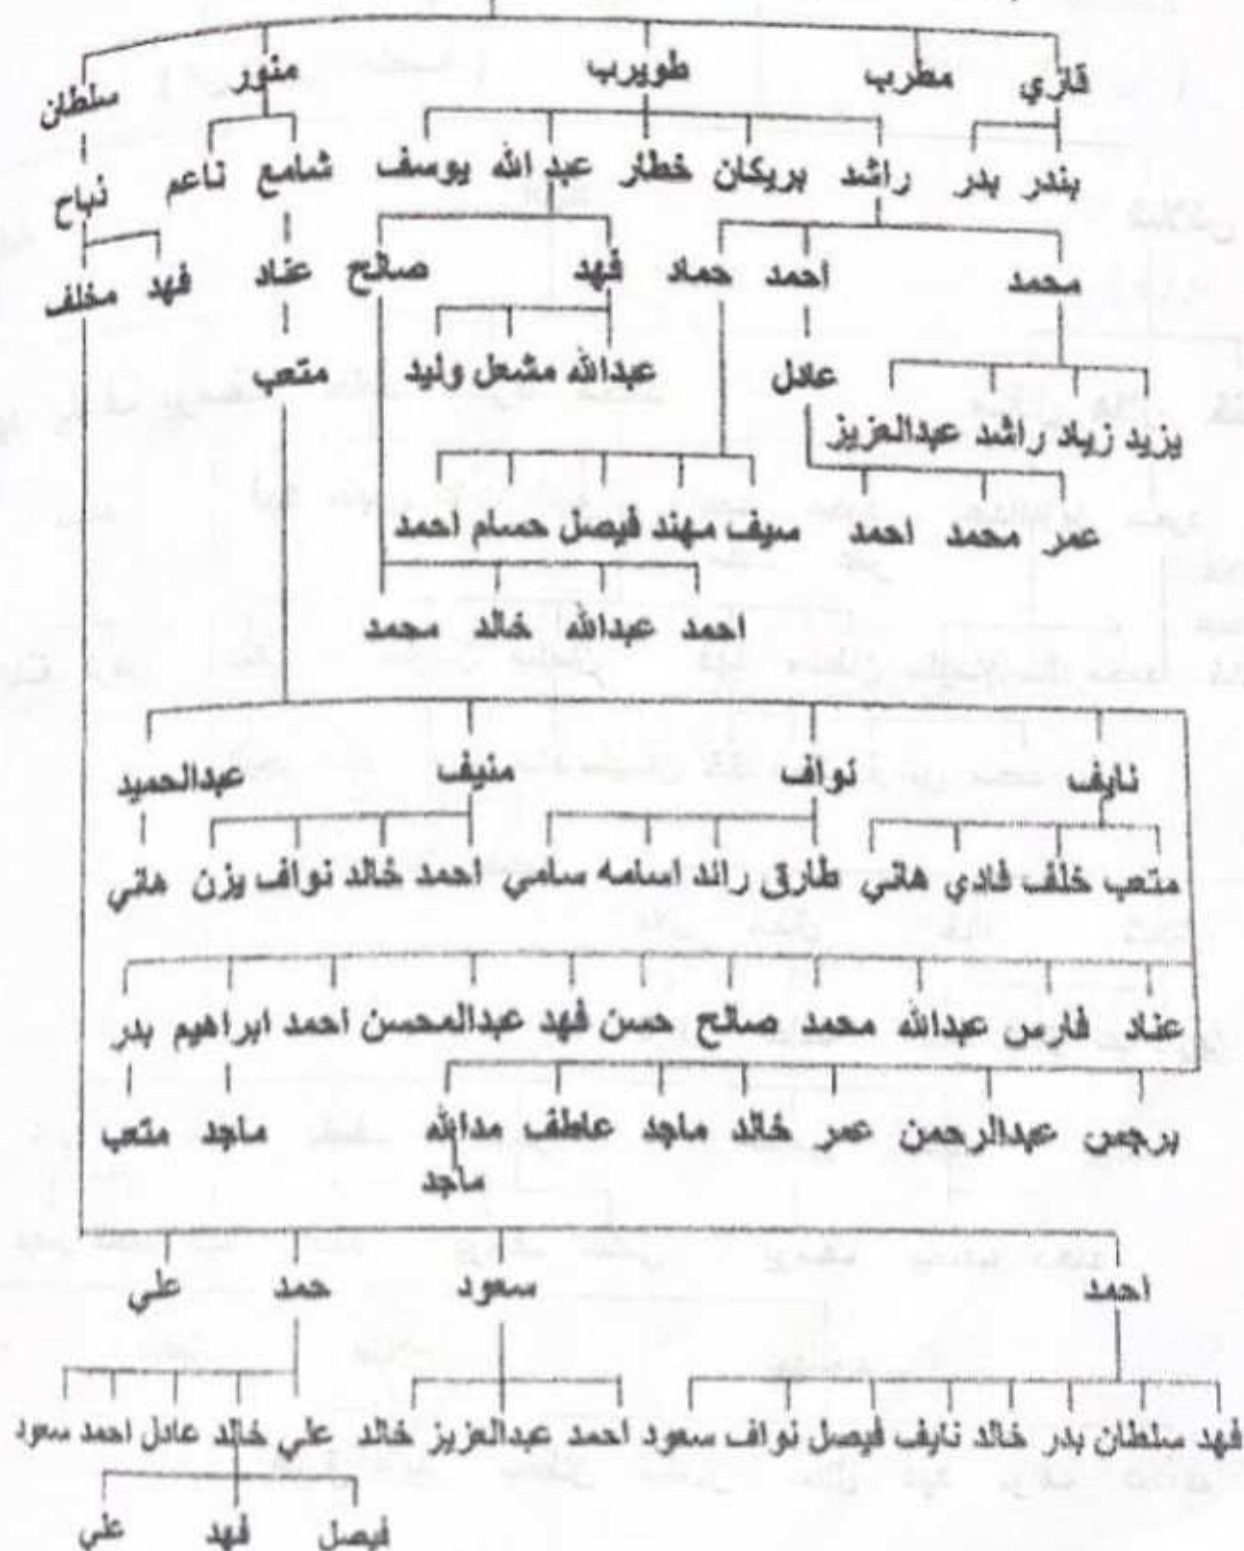 قازي مطرب طويرب منور سلطان
بندر بدر راشد بريكان خطار عبد الله يوسف شامع ناعم نباح
محمد احمد حماد فهد صالح عناد فهد مخلف
عادل عبدالله مشعل وليد متعب
يزيد زياد راشد عبدالعزيز
عمر محمد احمد سيف مهند فيصل حسام احمد
احمد عبدالله خالد محمد
نايف نواف منيف عبدالحميد
متعب خلف فادي هاني طارق رائد اسامه سامي احمد خالد نواف يزن هاني
عناد فارس عبدالله محمد صالح حسن فهد عبدالمحسن احمد ابراهيم بدر
برجس عبدالرحمن عمر خالد ماجد عاطف مدالله ماجد متعب
ماجد
احمد سعود حمد علي
فهد سلطان بدر خالد نايف فيصل نواف سعود احمد عبدالعزيز خالد علي خالد عادل احمد سعود
فيصل فهد علي